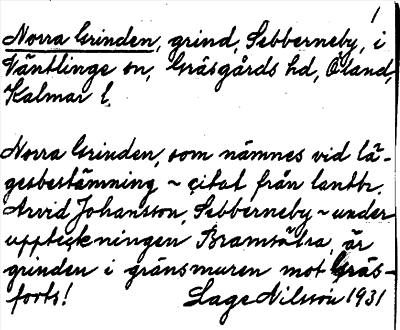 1
Norra Grinden, grind, Sebberneby, i
Ventlinge sn, Gräsgårds hd, Öland,
Kalmar l.
Norra Grinden, som nämnes vid lä-
gesbestämning ~ citat från lantbr.
Arvid Johansson, Sebberneby ~ under
uppteckningen Bramsätra, är
grinden i gränsmuren mot Gräs-
forts!
Lage Nilsson 1931